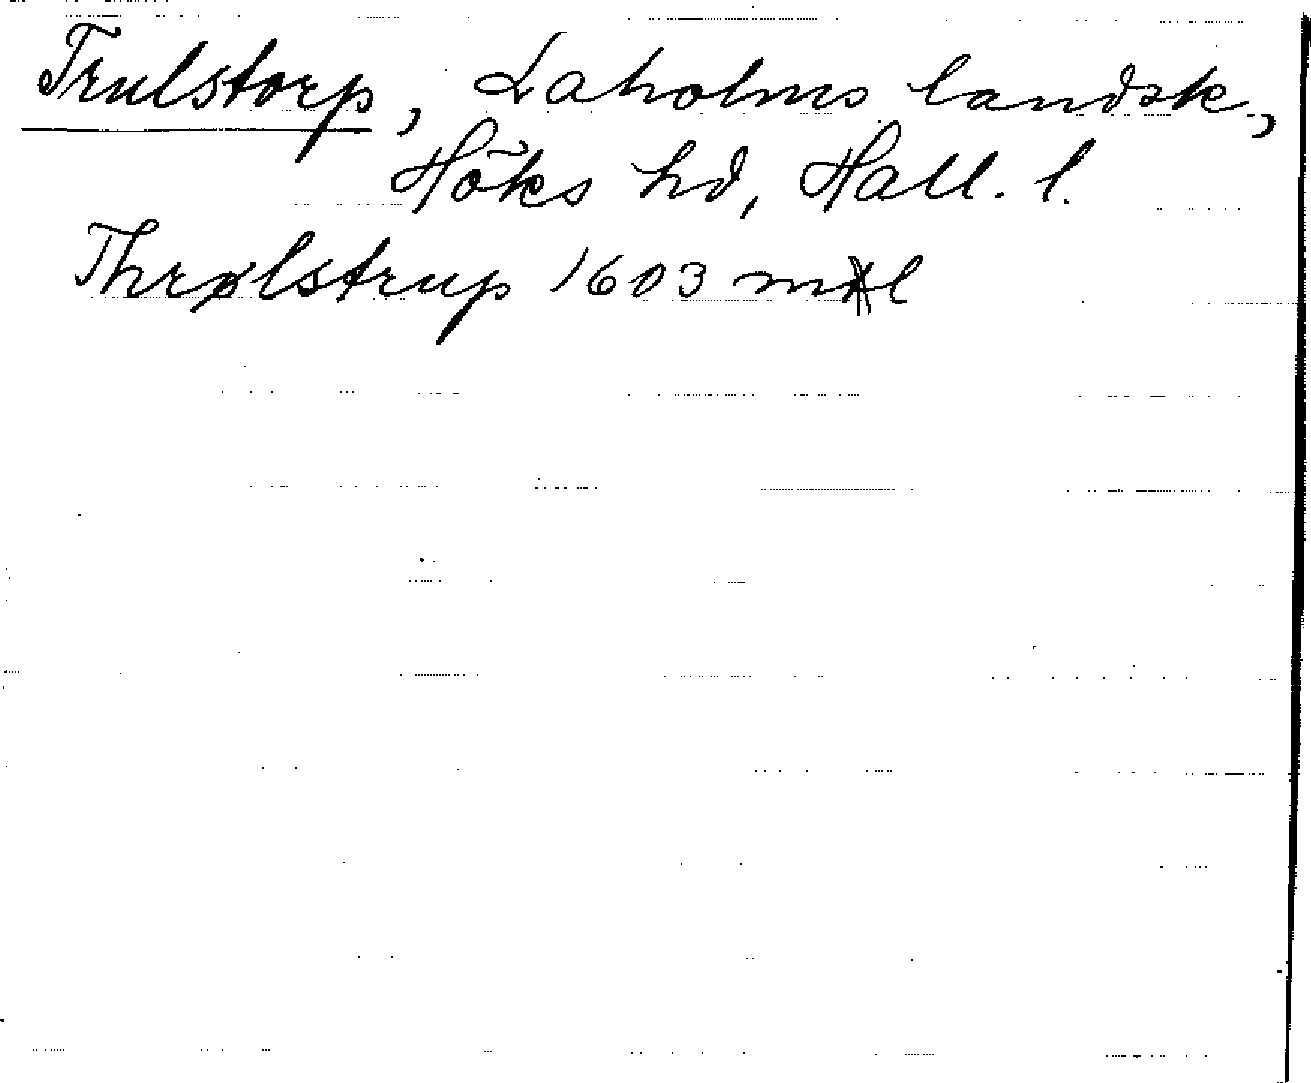 Trulstorp, Laholms landsk.,
Höks hd, Hall. l.
Thrølstrup 1603 mtl